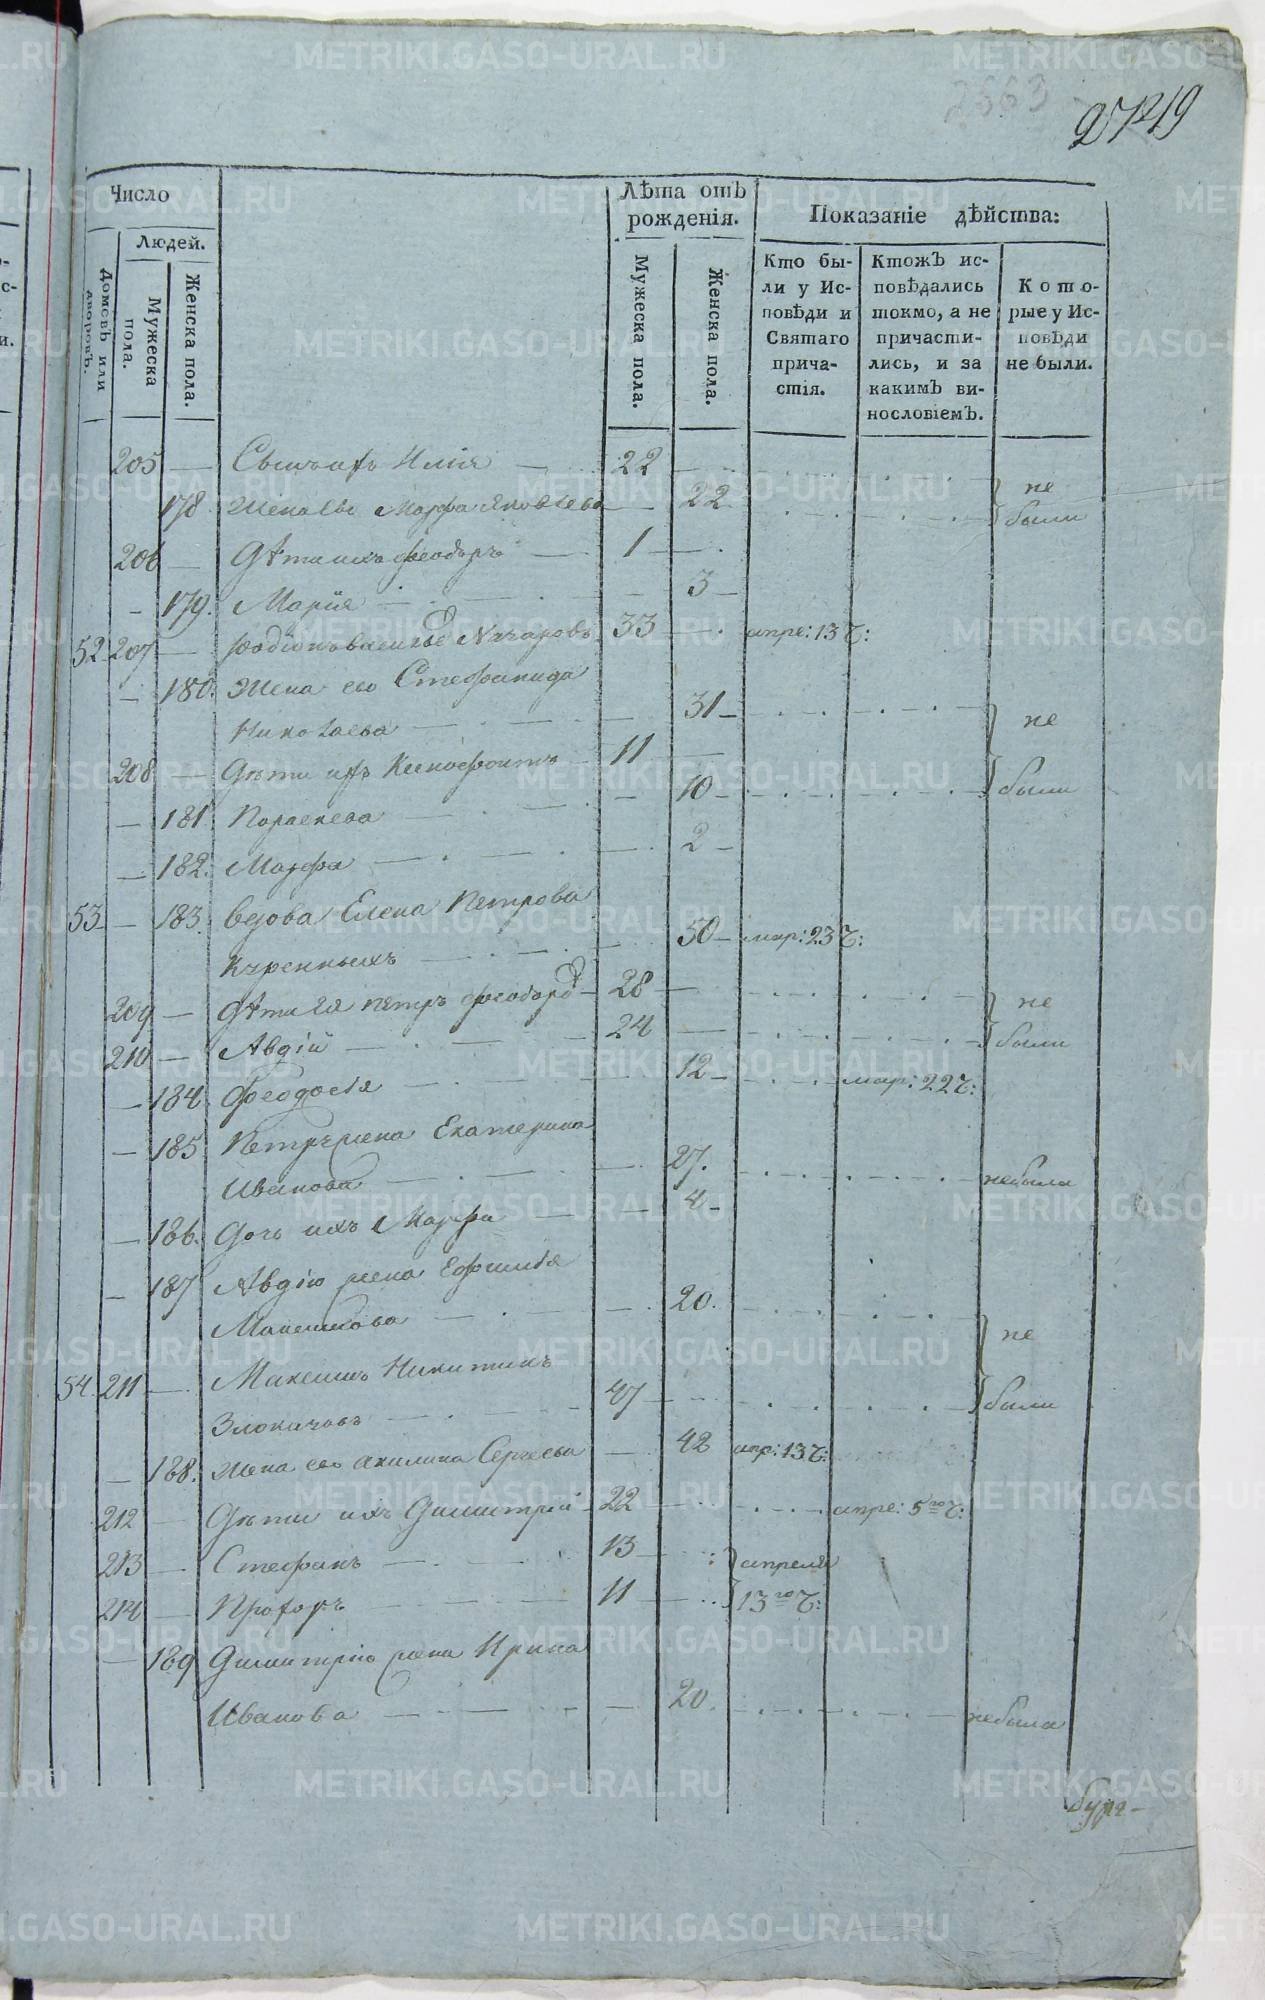 2663
27219
Число
Людей.
Домовъ или дворовъ.
Мужеска пола.
Женска пола.
Лѣта отъ рожденія.
Мужеска пола.
Женска пола.
Показаніе дѣйства:
Кто были у Исповѣди и Святаго причастія.
Ктожъ исповѣдались токмо, а не причастились, и за какимъ винословіемъ.
Которые у Исповѣди не были.
205 — Сынъ ихъ Илія — 22
178 Жена его Марфа Яковлева — 22 не были
206 — Дѣти ихъ Феодоръ — 1
179. Марія 3
52 207 — Родіонъ Васильевъ 33 апре: 13 ч:
180. Жена его Стефанида
Николаева 31 не
208 — Дѣти ихъ Ксенофонтъ 11
181 Параскева 10 были
182. Марфа 2
53 — 183. Вдова Елена Петрова
Куренныхъ 50 мар: 23 ч:
209 — Дѣти ея Петръ 28 не
210 — Авдій 24 были
184. Феодосія 12 мар: 22 ч:
185 Петръ жена Екатерина
Иванова 27. небыла
186. Дочь ихъ Марфа 4
187 Авдію жена Ефимія
Максимова 20. не
54. 211 — Максимъ Никитинъ
Злокачовъ 47 были
188. Жена его Акилина Сергеева 42 апр: 13 ч:
212 — Дѣти ихъ Димитрій 22 апре: 5го ч:
213 — Стефанъ 13 апреля
214 — Прохоръ 11 13го ч:
189 Димитрію жена Ирина
Иванова 20. небыла